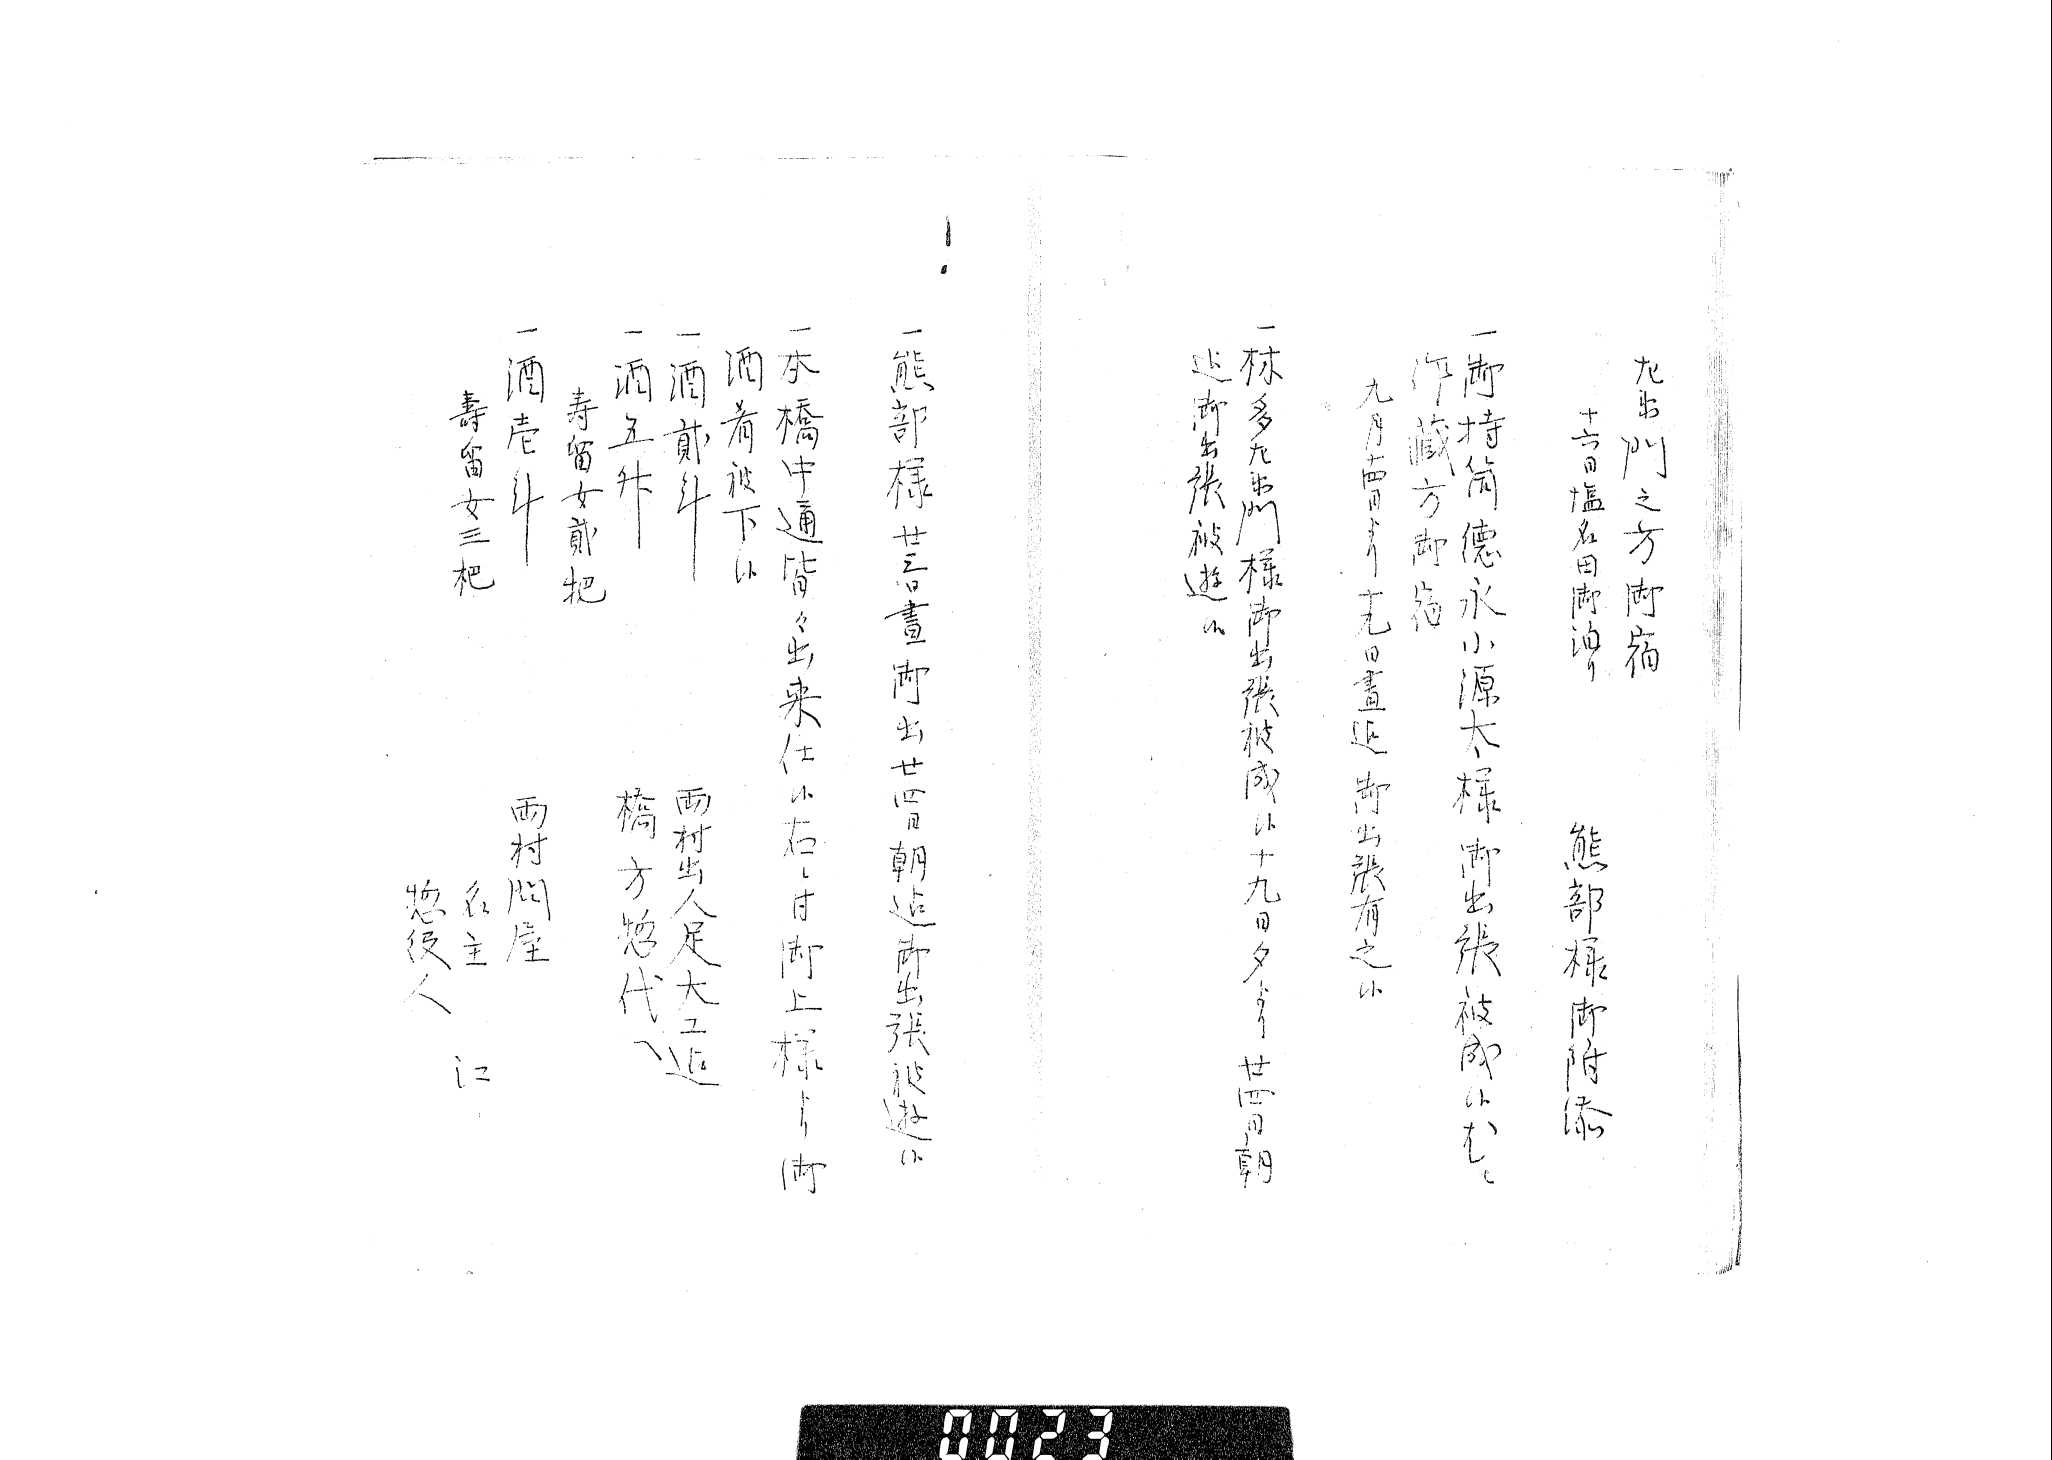 左衛門之方御宿
十六日塩名田御泊り
熊部様御附添
一御持筒德永小源太様御出張被成候
作藏方御宿
九月十四日より十九日晝迄御出張有之候
一林多左衛門様御出張被成候十九日夕より廿四日朝
迄御出張被遊候
一熊部様廿三日晝御出廿四日朝迄御出張被遊候
一本橋中通皆々出来仕候右ニ付御上様より御
酒肴被下候
一酒貮斗 両村出人足大工迄
一酒五升 橋方惣代へ
壽留女貮把
一酒壱斗 両村問屋
壽留女三把 名主 江
惣役人
0023